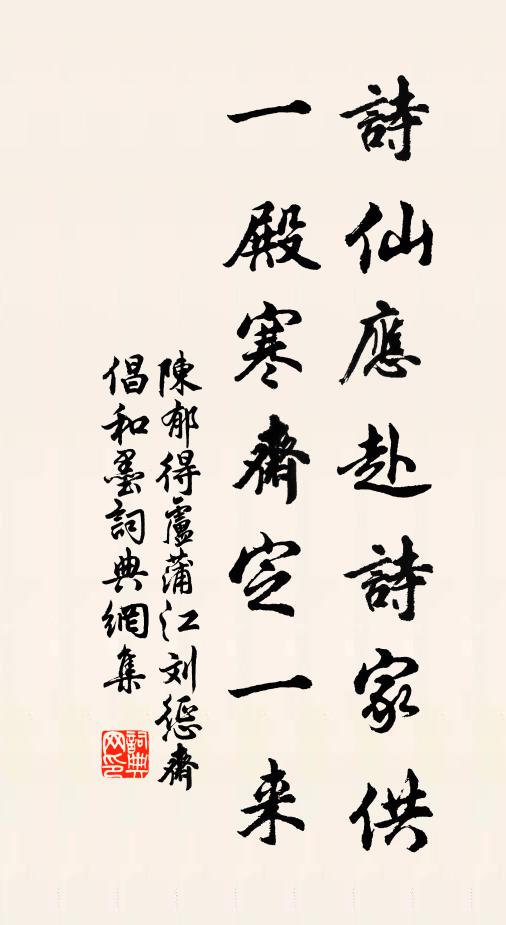 詩仙應赴詩家供
一殿寒齋定一来
陳郁得盧蒲江刘惩齋
倡和墨詞典網集
詞典网印